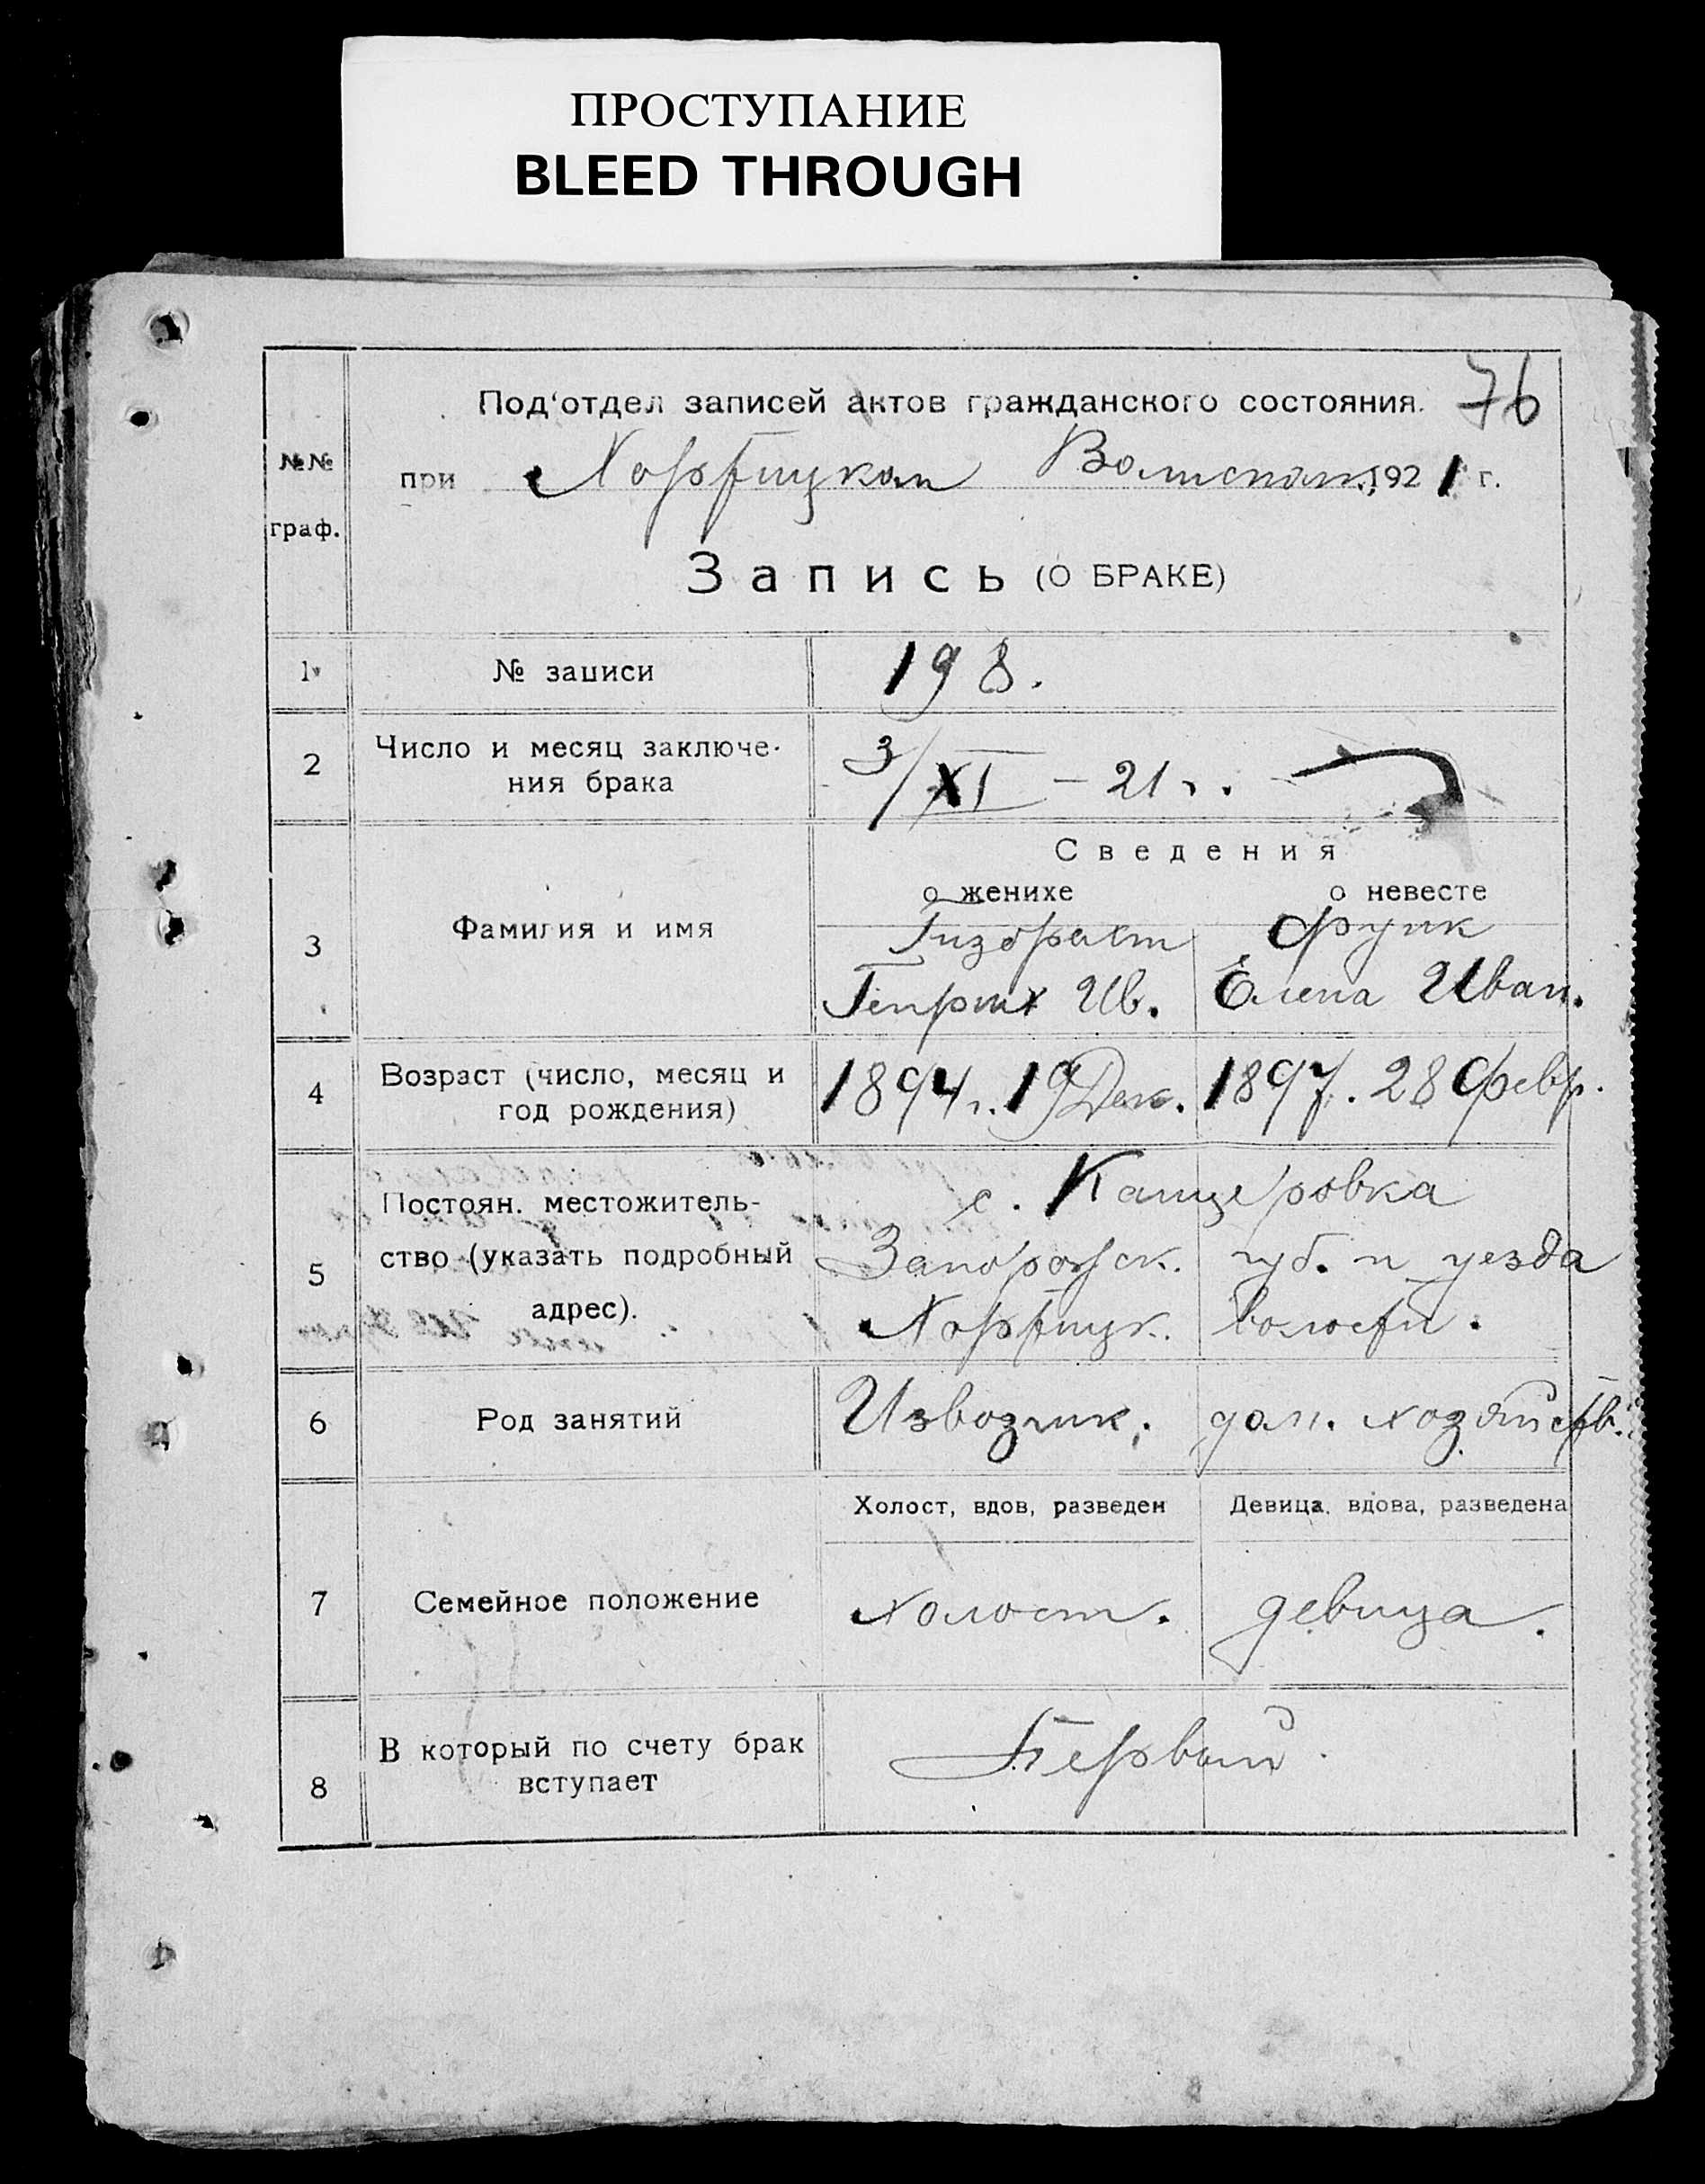 ПРОСТУПАНИЕ
BLEED THROUGH
Под'отдел записей актов гражданского состояния. 76
№№ граф.
при Хортицком Волисполк. 1921 г.
Запись (О БРАКЕ)
1. № записи 198.
2 Число и месяц заключе-
ния брака 3/XI - 21 г.
Сведения
о женихе о невесте
3 Фамилия и имя Гизбрехт Функ
Генрих Ив. Елена Иван.
4 Возраст (число, месяц и
год рождения) 1894 г. 19 Дек. 1897. 28 Февр.
5 Постоян. местожитель-
ство (указать подробный
адрес).
с. Канцеровка
Запорожск. губ. и уезда
Хортицк. волости.
6 Род занятий Извозчик. дом. хозяйств.
Холост, вдов, разведен Девица, вдова, разведена
7 Семейное положение холост. девица.
8 В который по счету брак
вступает Первый